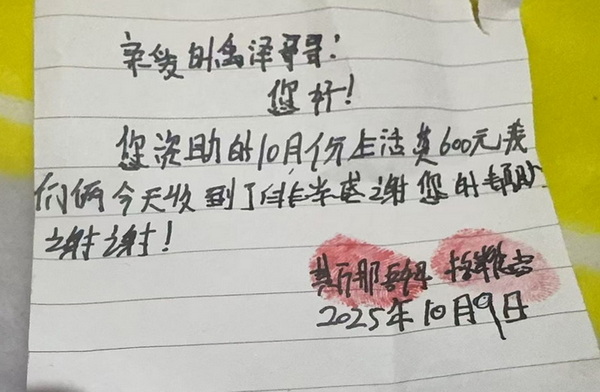 亲爱的禹泽哥哥:
您好!
您资助的10月份生活费600元我
们俩今天收到了非常感谢您的帮助
谢谢!
2025年10月9日